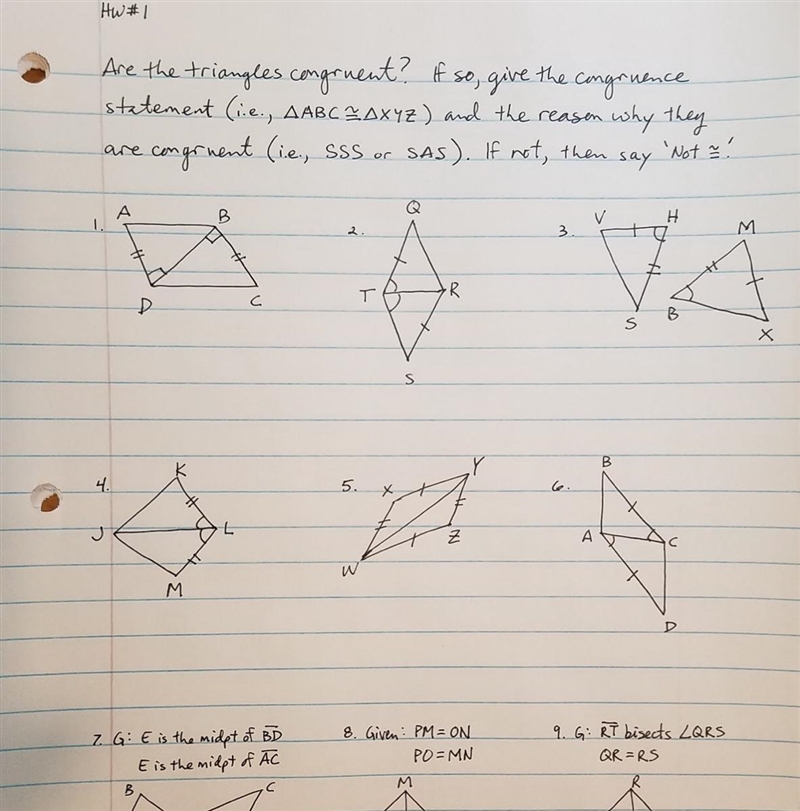 HW#1
Are the triangles congruent? If so, give the congruence
statement (i.e., △ABC ≅ △XYZ) and the reason why they
are congruent (i.e., SSS or SAS). If not, then say 'Not ≅'.
1. A B D C
2. Q T R S
3. V H S M B X
4. K J L M
5. X Y W Z
6. B A C D
7. G: E is the midpt of BD
E is the midpt of AC
8. Given: PM = ON
PO = MN
9. G: RT bisects ∠QRS
QR = RS
B C
M
R